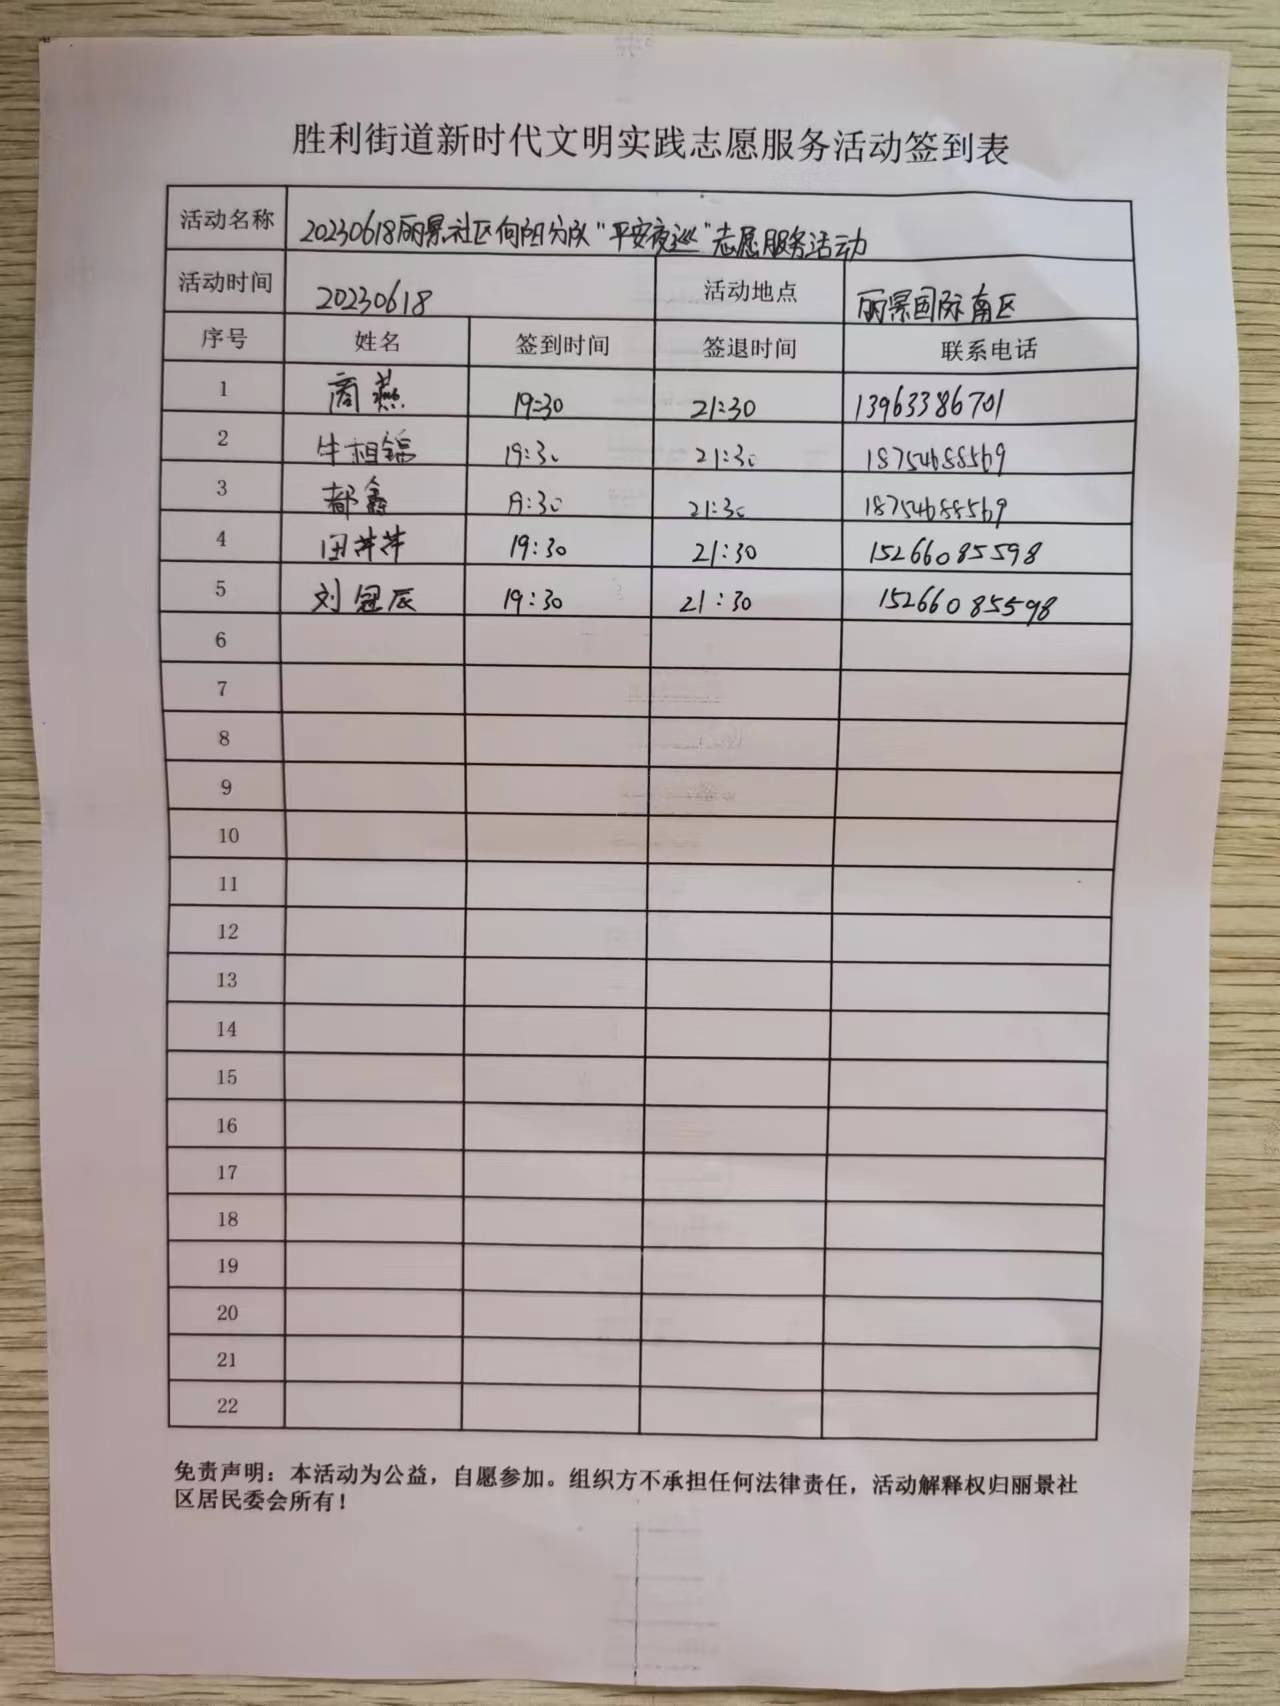 胜利街道新时代文明实践志愿服务活动签到表
活动名称 20230618丽景社区向阳分队“平安夜巡”志愿服务活动
活动时间 20230618 活动地点 丽景国际南区
序号 姓名 签到时间 签退时间 联系电话
1 商燕 19:30 21:30 13963386701
2 牛相锦 19:30 21:30 18754688569
3 都鑫 19:30 21:30 18754688569
4 田萍萍 19:30 21:30 15266085598
5 刘冠辰 19:30 21:30 15266085598
6
7
8
9
10
11
12
13
14
15
16
17
18
19
20
21
22
免责声明：本活动为公益，自愿参加。组织方不承担任何法律责任，活动解释权归丽景社
区居民委会所有！